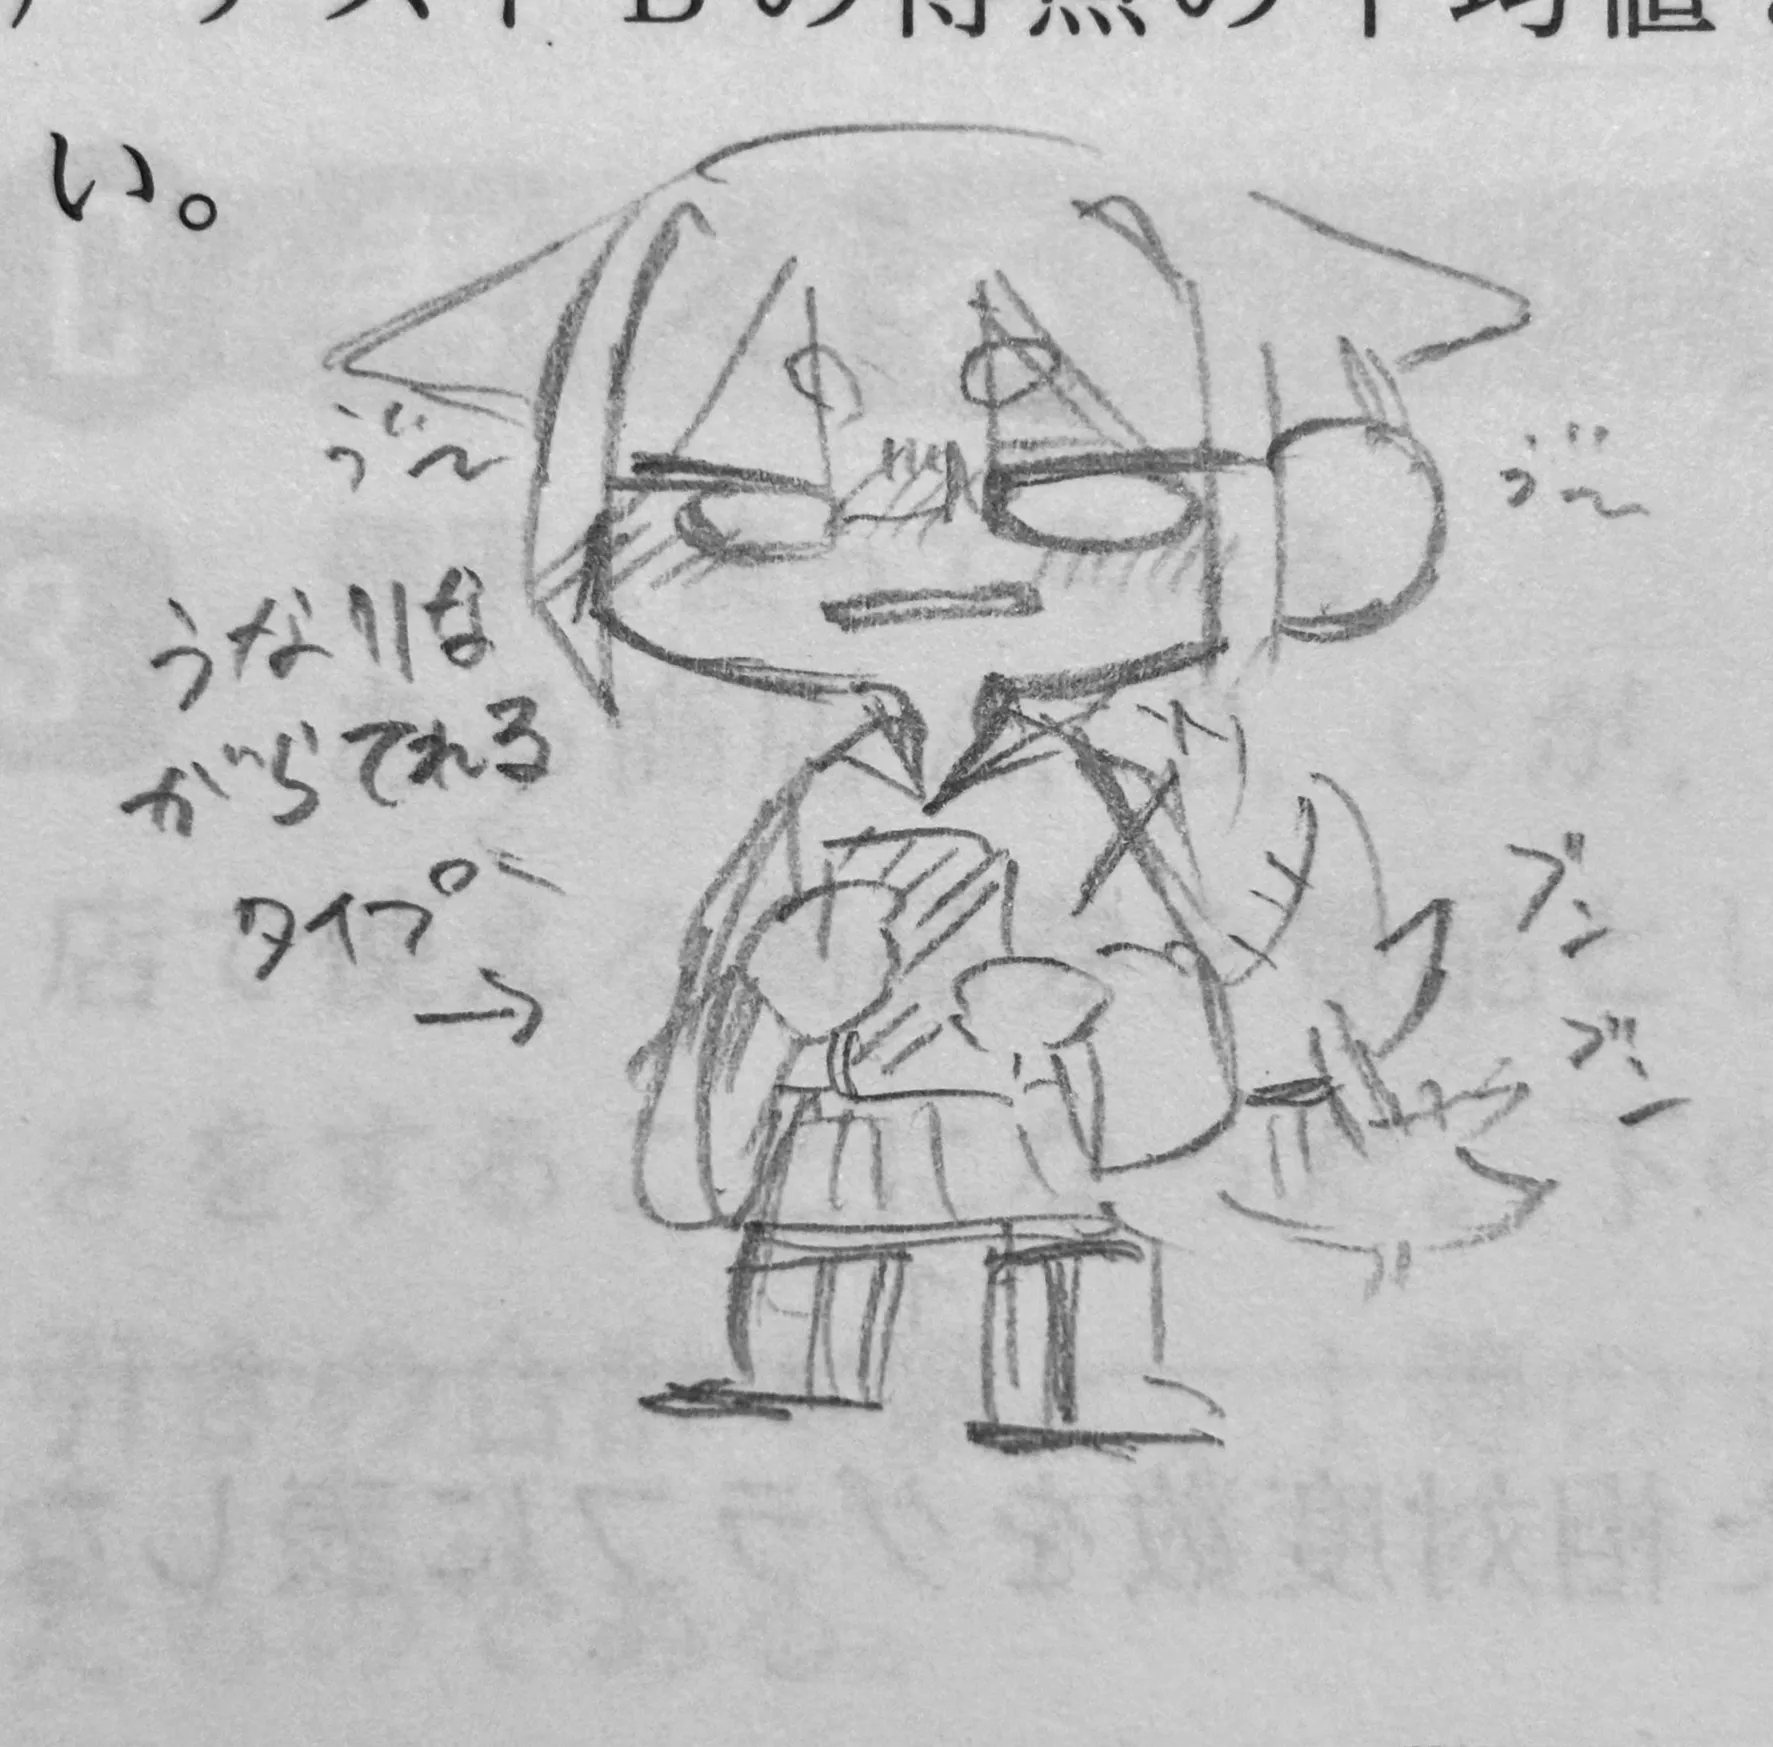 テストBの得点の平均値
い。
ゔ〜
ゔ〜
うなりな
がらてれる
タイプ
→
ブン
ブン